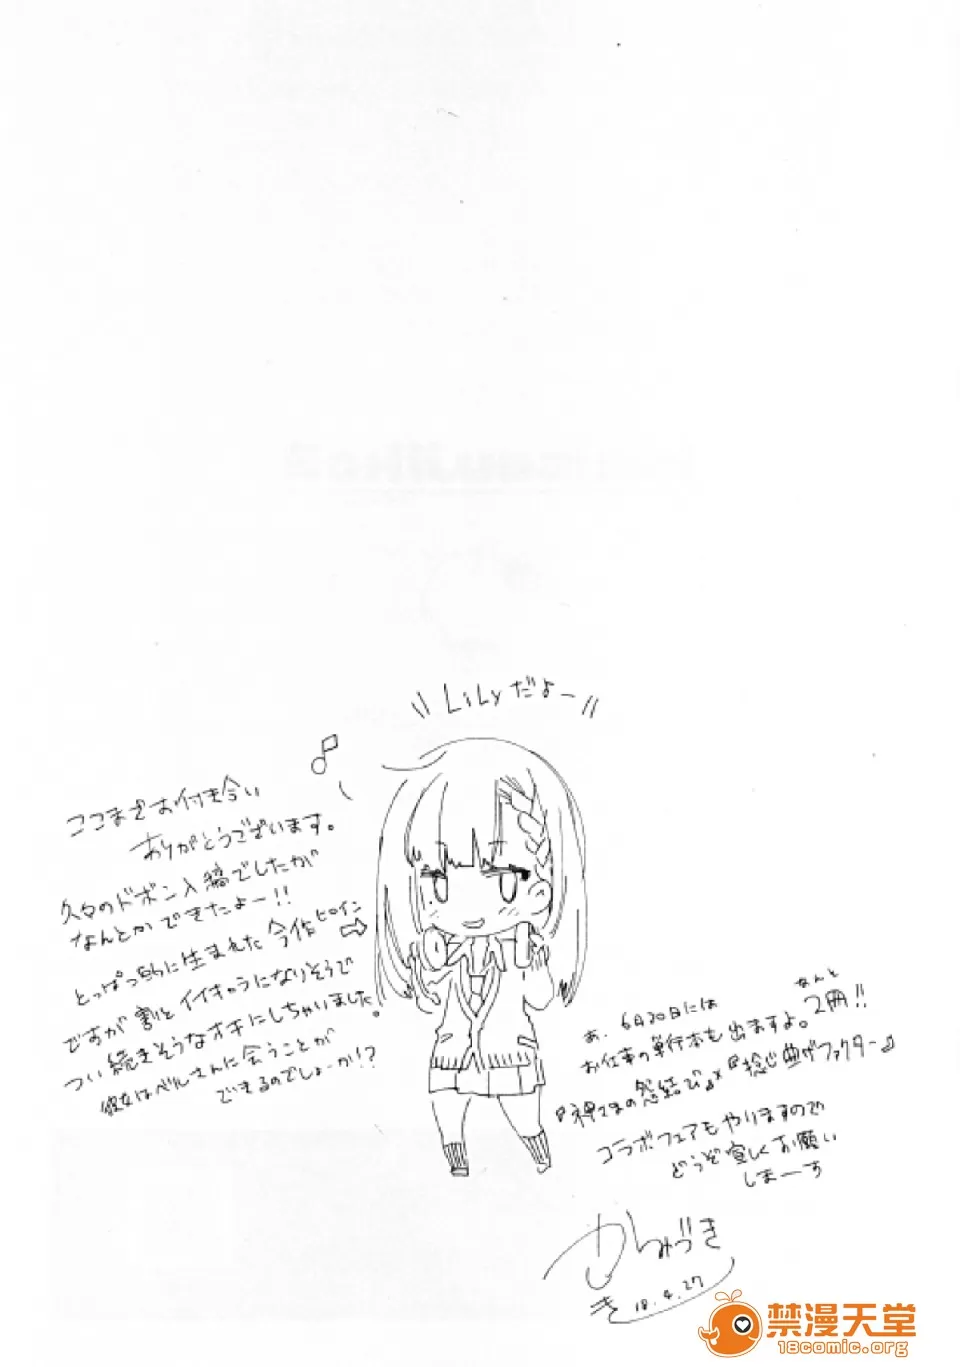 Lilyだよー
ここまでお付き合い
ありがとうございます。
久々のドボン入稿でしたが
なんとかできたよー!!
とっぱつ的に生まれた今作ヒロイン
ですが割とイイキャラになりそうで
つい続きそうなオチにしちゃいました。
彼女はベルさんに会うことが
できるのでしょーか!?
あ、6月30日には
なんと
お仕事の単行本も出ますよ。2冊!!
『神さまの怨結び』×『捻じ曲げファクター』
コラボフェアもやりますので
どうぞ宜しくお願い
しまーす
かしゅづき
18.4.27
禁漫天堂
18comic.org